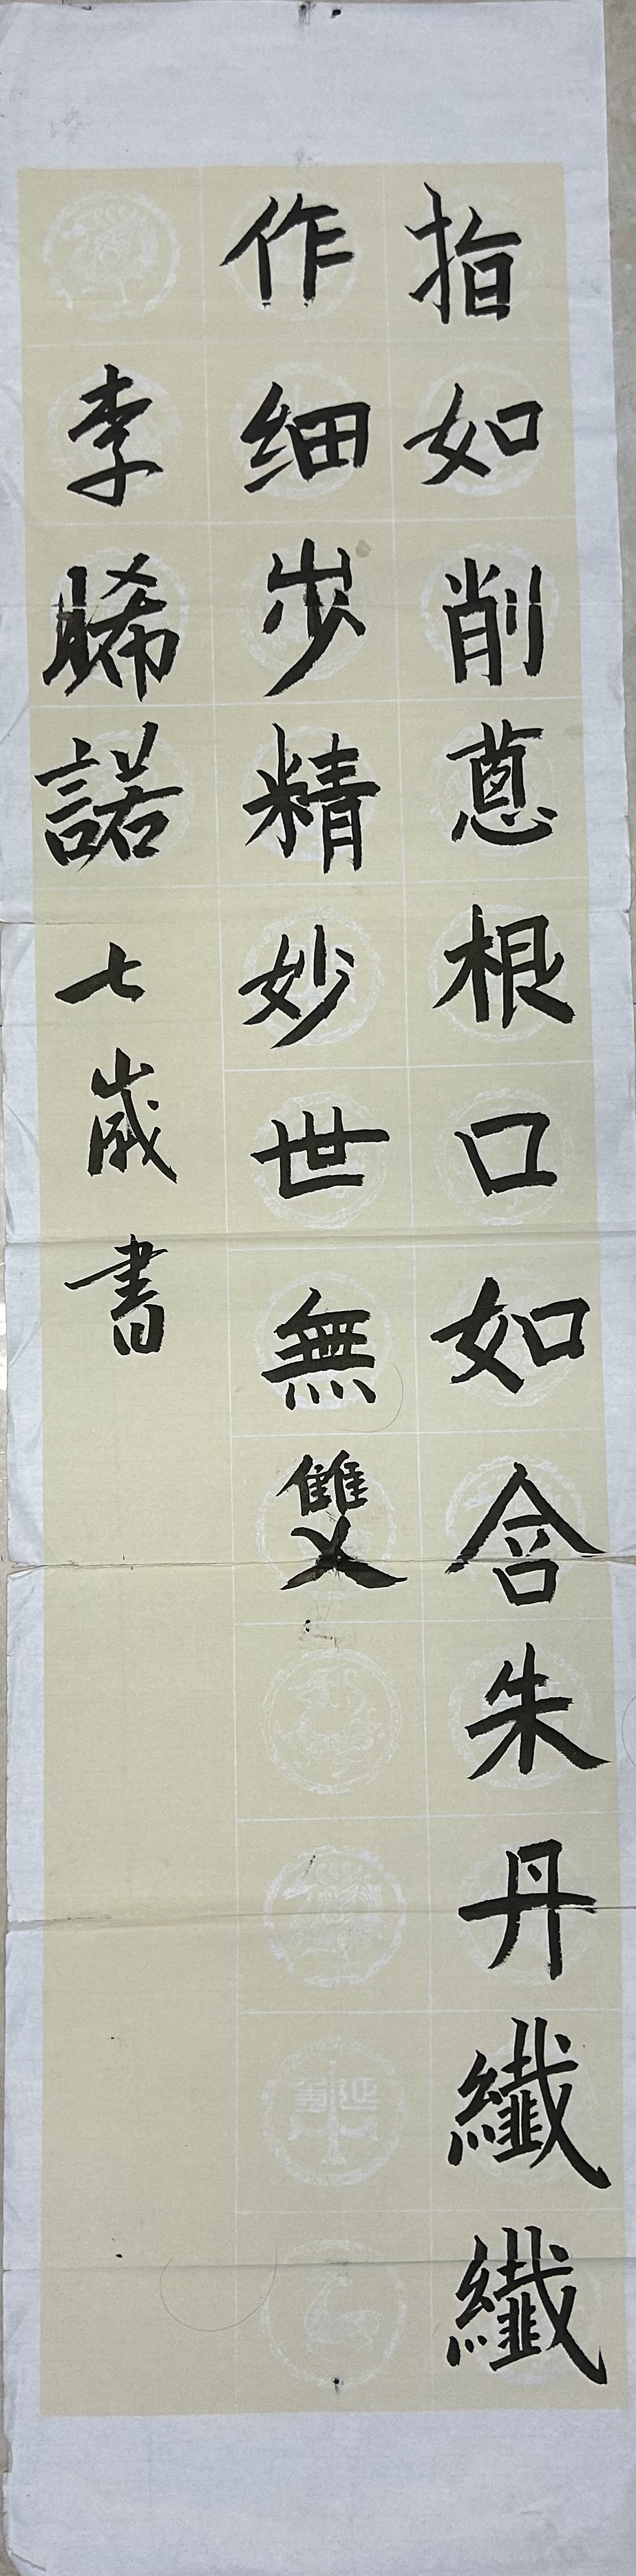 指如削葱根口如含朱丹纖纖
作细步精妙世無雙
李睎諾七歲書